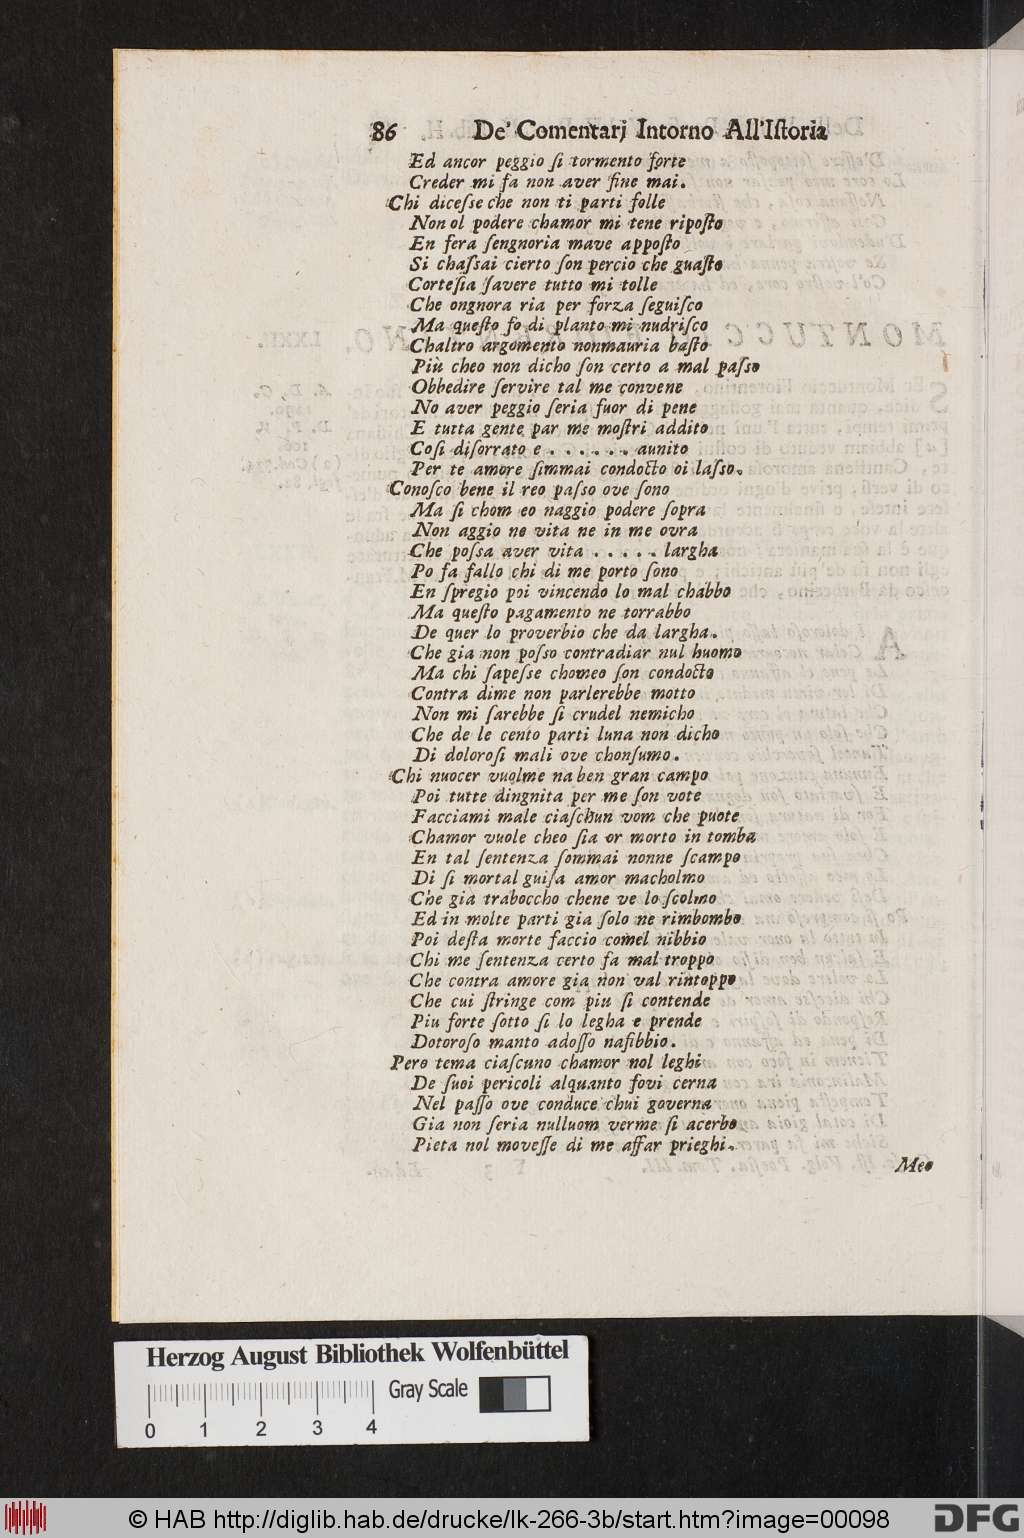 86 De' Comentarj Intorno All'Iſtoria
Ed ancor peggio ſi tormento forte
Creder mi fa non aver fine mai.
Chi diceſse che non ti parti folle
Non ol podere chamor mi tene ripoſto
En fera ſengnoria mave appoſto
Si chaſsai cierto ſon percio che guaſto
Corteſia ſavere tutto mi tolle
Che ongnora ria per forza ſeguiſco
Ma queſto fo di planto mi nudriſco
Chaltro argomento nonmauria baſto
Più cheo non dicho ſon certo a mal paſso
Obbedire ſervire tal me convene
No aver peggio ſeria fuor di pene
E tutta gente par me moſtri addito
Coſi diſorrato e . . . . . . aunito
Per te amore ſimmai condotto oi laſso.
Conoſco bene il reo paſso ove ſono
Ma ſi chom eo naggio podere ſopra
Non aggio ne vita ne in me ovra
Che poſsa aver vita . . . . . largha
Po fa fallo chi di me porto ſono
En ſpregio poi vincendo lo mal chabbo
Ma queſto pagamento ne torrabbo
De quer lo proverbio che da largha.
Che gia non poſso contradiar nul huomo
Ma chi ſapeſse chomeo ſon condotto
Contra dime non parlerebbe motto
Non mi ſarebbe ſi crudel nemicho
Che de le cento parti luna non dicho
Di doloroſi mali ove chonſumo.
Chi nuocer vuolme na ben gran campo
Poi tutte dingnita per me ſon vote
Facciami male ciaſchun vom che puote
Chamor vuole cheo ſia or morto in tomba
En tal ſentenza ſommai nonne ſcampo
Di ſi mortal guiſa amor macholmo
Che gia traboccho chene ve lo ſcolmo
Ed in molte parti gia ſolo ne rimbombo
Poi deſta morte faccio comel nibbio
Chi me ſentenza certo fa mal troppo
Che contra amore gia non val rintoppo
Che cui ſtringe com piu ſi contende
Piu forte ſotto ſi lo legha e prende
Dotoroſo manto adoſſo naſibbio.
Pero tema ciaſcuno chamor nol leghi
De ſuoi pericoli alquanto ſovi cerna
Nel paſſo ove conduce chui governa
Gia non ſeria nulluom verme ſi acerbo
Pieta nol moveſſe di me affar prieghi.
Meo
Herzog August Bibliothek Wolfenbüttel
Gray Scale
0 1 2 3 4
© HAB http://diglib.hab.de/drucke/lk-266-3b/start.htm?image=00098
DFG